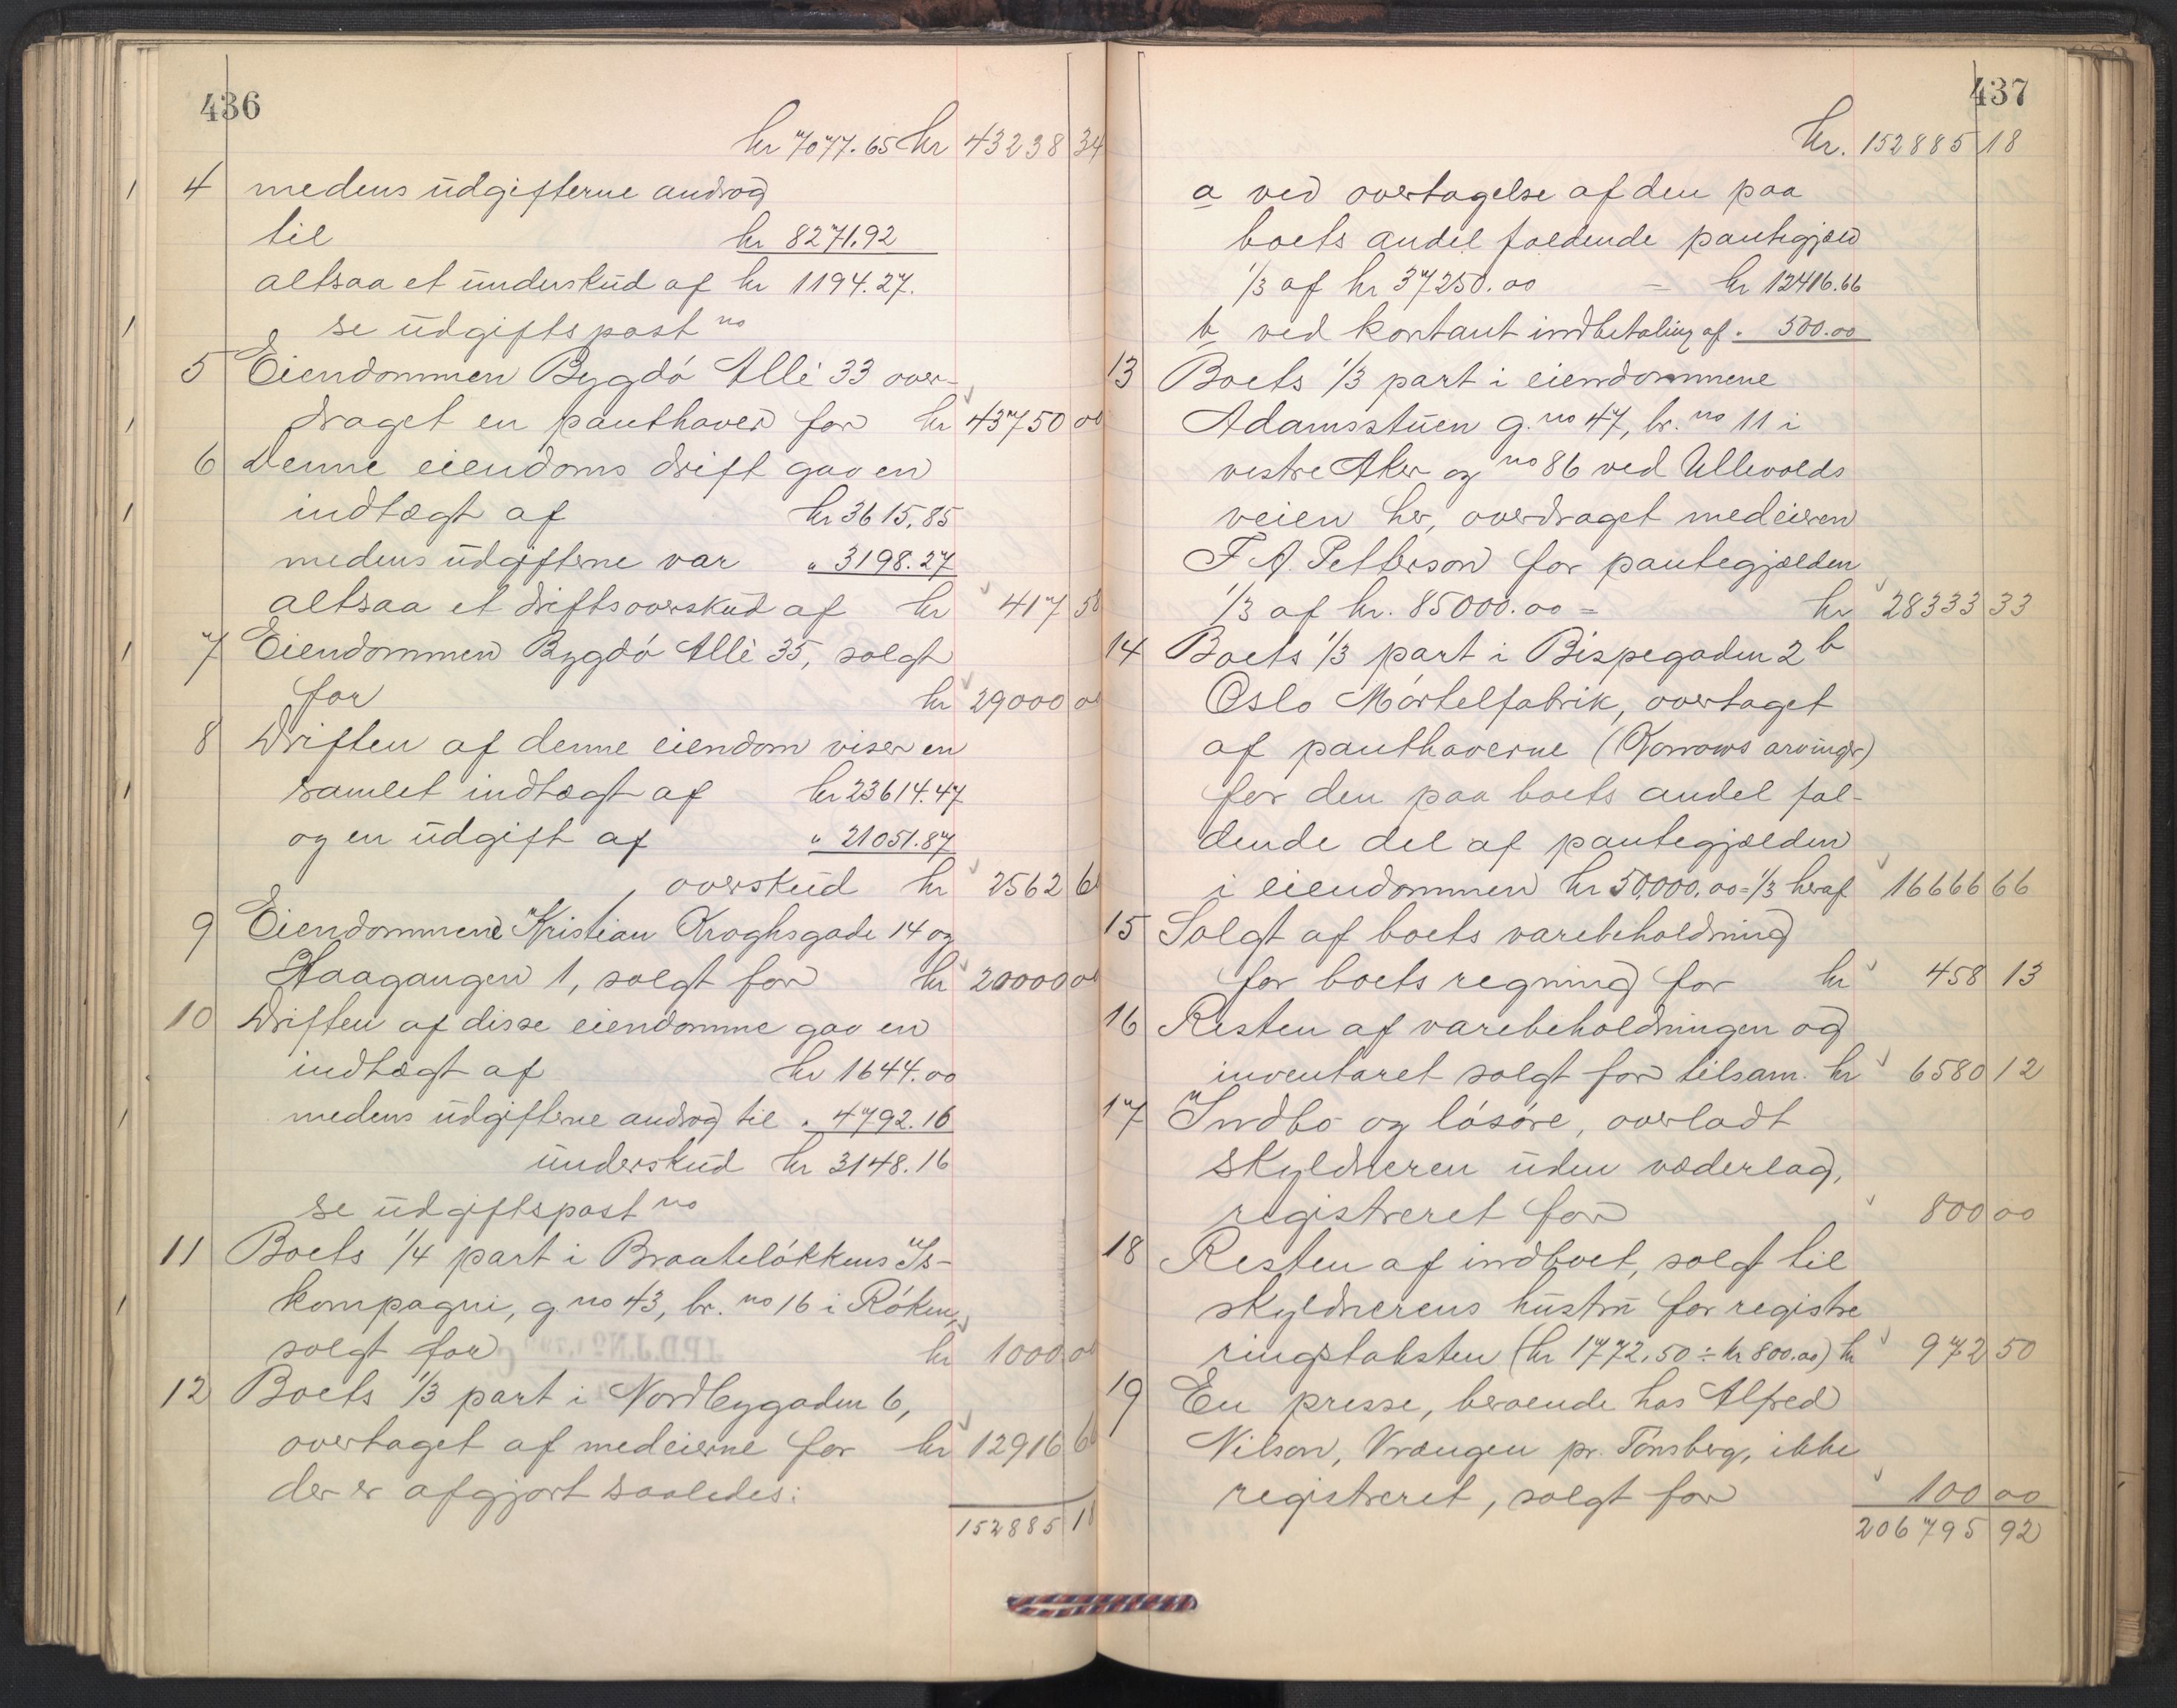 436
kr 7077.65 kr 43238 34
4 medens udgifterne androg
til kr 8271.92
altsaa et underskud af kr 1194.27.
se udgiftspost no
5 Eiendommen Bygdø Allé 33 over-
draget en panthaver for kr 43750 00
6 Denne eiendoms drift gav en
indtægt af kr 3615.85
medens udgifterne var " 3198.27
altsaa et driftsoverskud af kr 417 58
7 Eiendommen Bygdø Allé 35, solgt
for kr 29000 00
8 Driften af denne eiendom viser en
samlet indtægt af kr 23614.47
og en udgift af " 21051.87
overskud kr 2562 60
9 Eiendommene Kristian Kroghsgade 14 og
Vaagangen 1, solgt for kr 20000 00
10 Driften af disse eiendomme gav en
indtægt af kr 1644.00
medens udgifterne androg til " 4792.16
underskud kr 3148.16
se udgiftspost no
11 Boets 1/4 part i Braateløkkens Is-
kompagni, g. no 43, br. no 16 i Røken,
solgt for kr 1000 00
12 Boets 1/3 part i Nordbygaden 6,
overtaget af medeierne for kr 12916 66
der er afgjort saaledes:
152885 18
437
kr. 152885 18
a ved overtagelse af den paa
boets andel faldende pantegjæld
1/3 af kr 37250.00 = kr 12416.66
b ved kontant indbetaling af " 500.00
13 Boets 1/3 part i eiendommene
Adamsstuen g. no 47, br. no 11 i
vestre Aker og no 86 ved Ullevolds
veien her, overdraget medeieren
F. A. Petterson for pantegjælden
1/3 af kr. 85000.00 = kr 28333 33
14 Boets 1/3 part i Bispegaden 2 b
Oslo Mørtelfabrik, overtaget
af panthaverne (Kornows arvinger)
for den paa boets andel fal-
dende del af pantegjælden
i eiendommen kr 50,000.00 = 1/3 heraf 16666 66
15 Solgt af boets varebeholdning
for boets regning for kr 458 13
16 Resten af varebeholdningen og
inventaret solgt for tilsam. kr 6580 12
17 Indbo og løsøre, overladt
skyldneren uden vederlag,
registreret for 800 00
18 Resten af indboet, solgt til
skyldnerens hustru for registre
ringstaksten (kr 1772.50 ÷ kr 800.00) kr 972 50
19 En presse, beroende hos Alfred
Nilson, Vrængen pr. Tønsberg, ikke
registreret, solgt for 100 00
206795 92